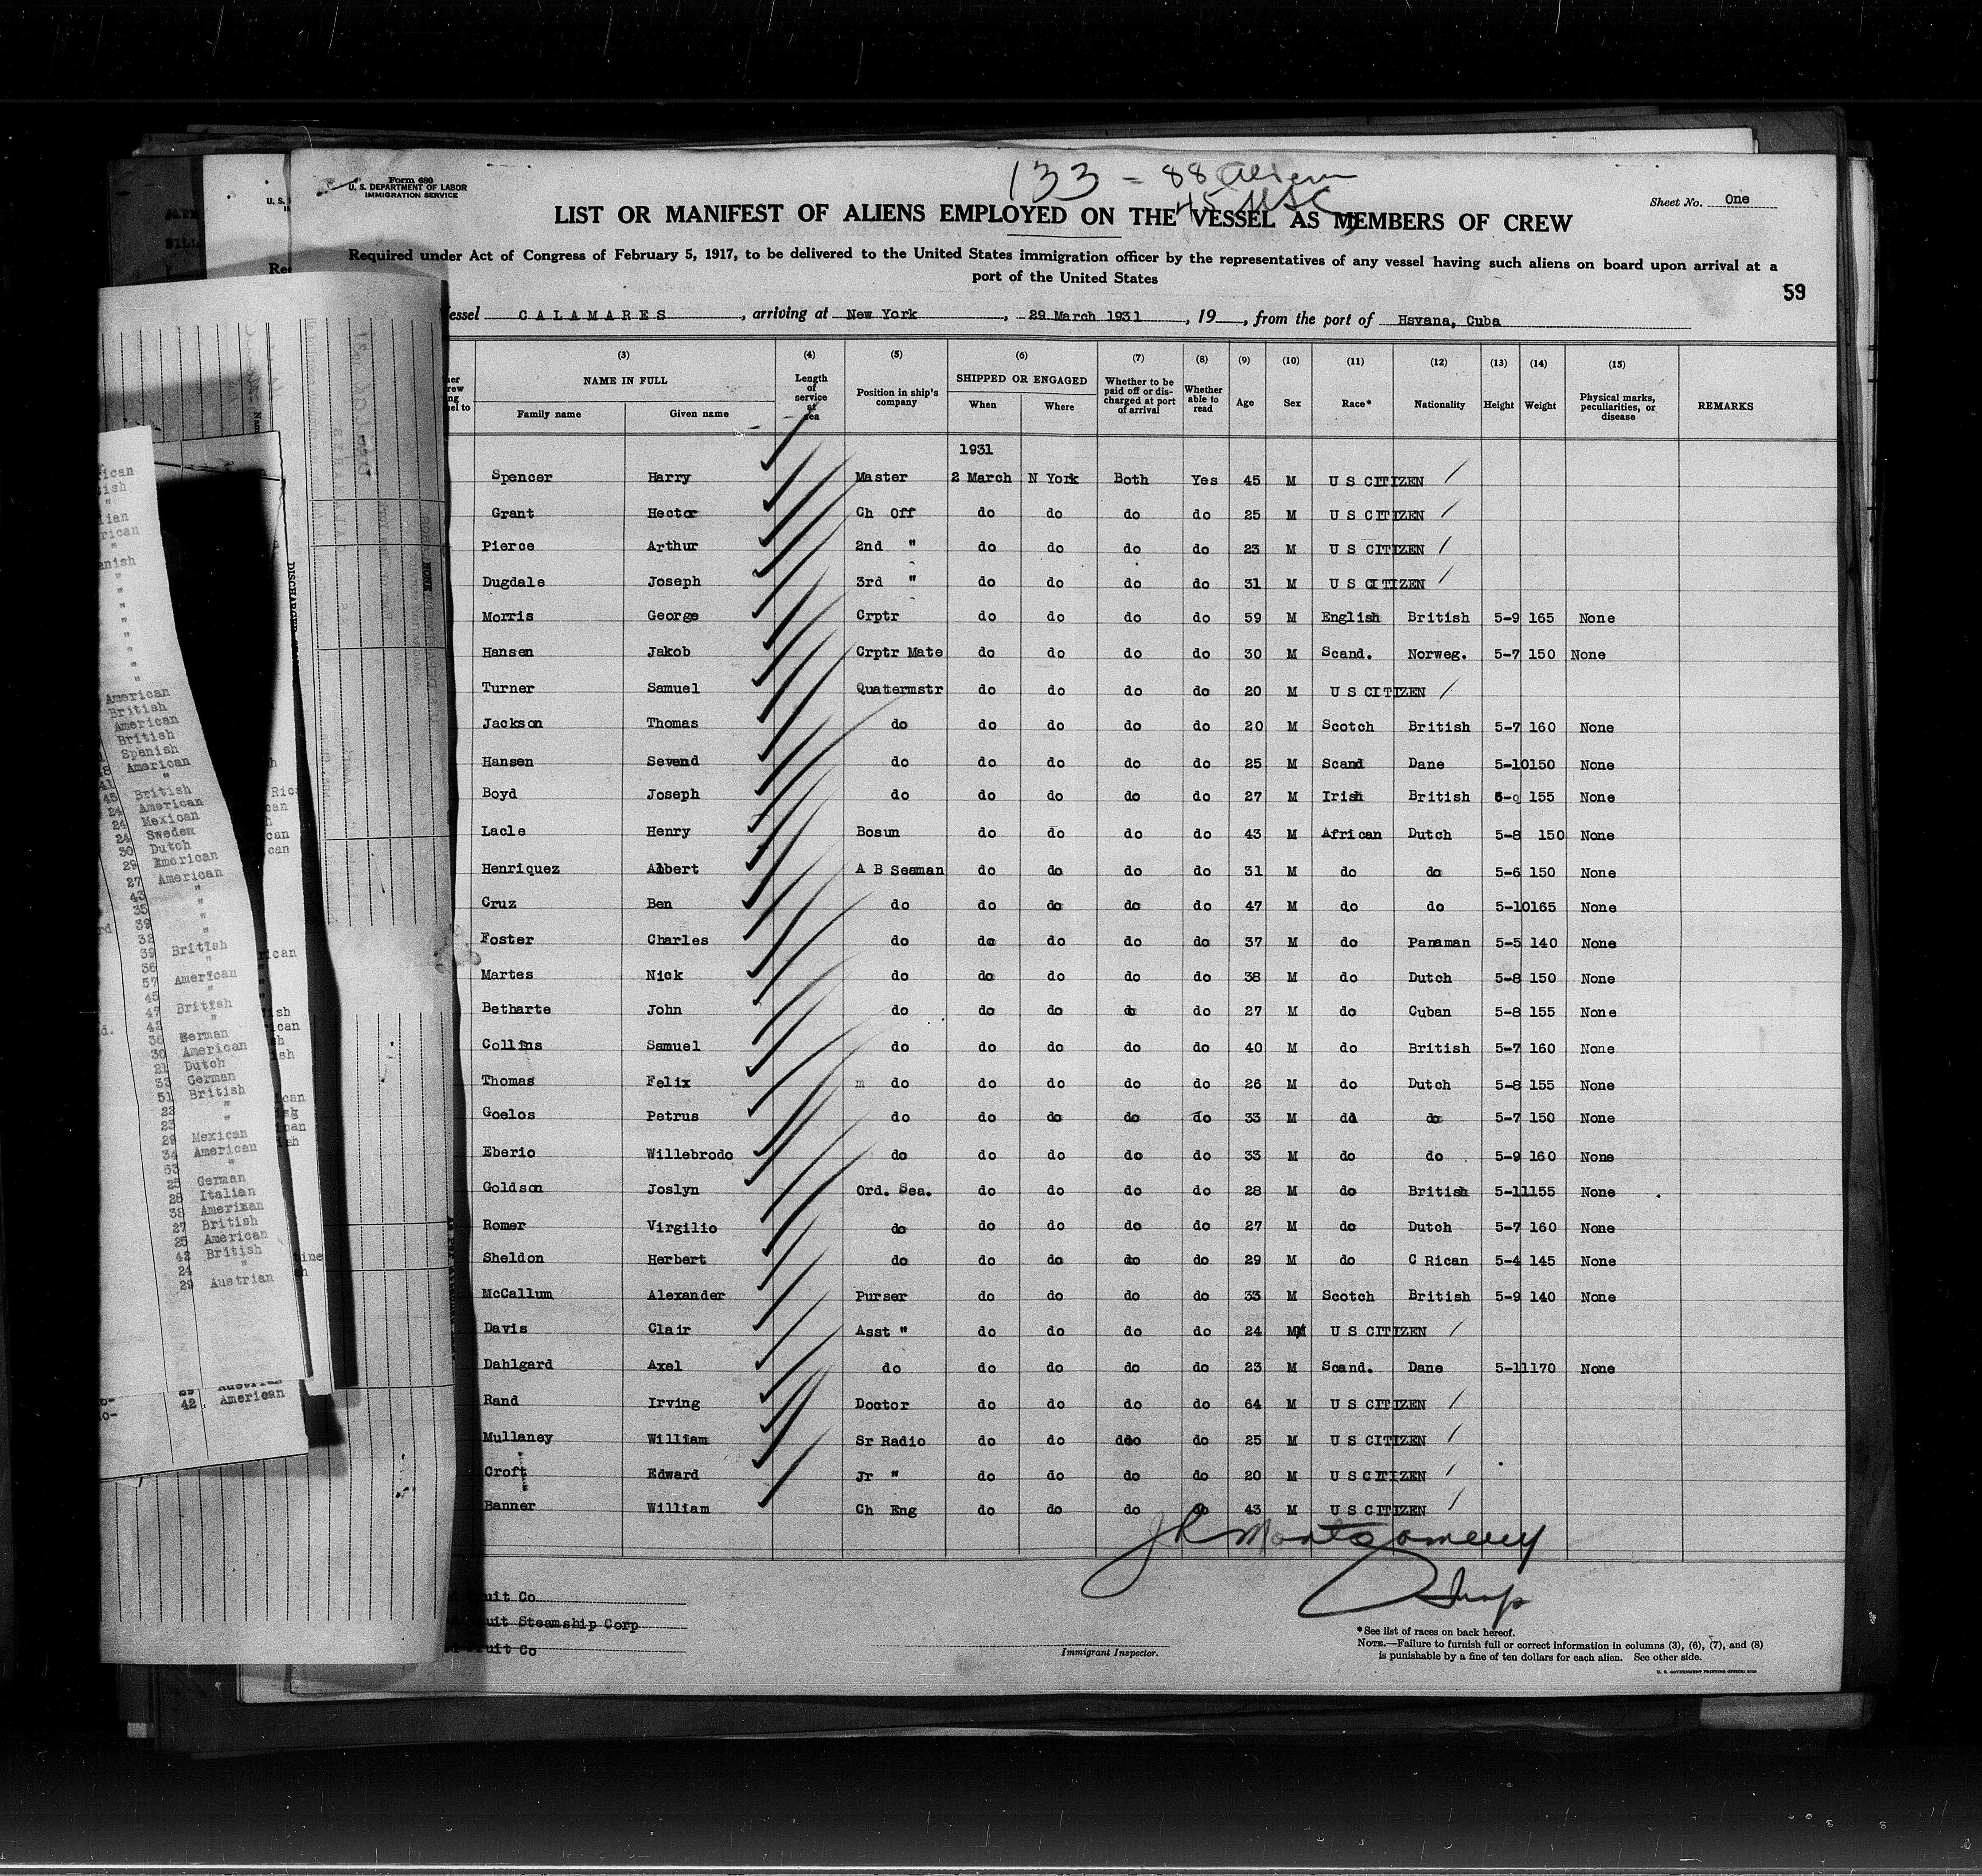 133 = 88 Aliens
45 USC
Form 680
U. S. DEPARTMENT OF LABOR
IMMIGRATION SERVICE
Sheet No. One
LIST OR MANIFEST OF ALIENS EMPLOYED ON THE VESSEL AS MEMBERS OF CREW
Required under Act of Congress of February 5, 1917, to be delivered to the United States immigration officer by the representatives of any vessel having such aliens on board upon arrival at a
port of the United States
59
essel CALAMARES, arriving at New York, 29 March 1931, 19, from the port of Hsvana, Cuba
(3) (4) (5) (6) (7) (8) (9) (10) (11) (12) (13) (14) (15)
NAME IN FULL Length of service at sea Position in ship's company SHIPPED OR ENGAGED Whether to be paid off or discharged at port of arrival Whether able to read Age Sex Race* Nationality Height Weight Physical marks, peculiarities, or disease REMARKS
Family name Given name When Where
1931
Spencer Harry Master 2 March N York Both Yes 45 M U S CITIZEN
Grant Hector Ch Off do do do do 25 M U S CITIZEN
Pierce Arthur 2nd " do do do do 23 M U S CITIZEN
Dugdale Joseph 3rd " do do do do 31 M U S CITIZEN
Morris George Crptr do do do do 59 M English British 5-9 165 None
Hansen Jakob Crptr Mate do do do do 30 M Scand. Norweg. 5-7 150 None
Turner Samuel Quatermstr do do do do 20 M U S CITIZEN
Jackson Thomas do do do do do 20 M Scotch British 5-7 160 None
Hansen Sevend do do do do do 25 M Scand Dane 5-10 150 None
Boyd Joseph do do do do do 27 M Irish British 155 None
Lacle Henry Bosun do do do do 43 M African Dutch 5-8 150 None
Henriquez Albert A B Seaman do do do do 31 M do do 5-6 150 None
Cruz Ben do do do do do 47 M do do 5-10 165 None
Foster Charles do do do do do 37 M do Panaman 5-5 140 None
Martes Nick do do do do do 38 M do Dutch 5-8 150 None
Betharte John do do do do do 27 M do Cuban 5-8 155 None
Collins Samuel do do do do do 40 M do British 5-7 160 None
Thomas Felix m do do do do do 26 M do Dutch 5-8 155 None
Goelos Petrus do do do do do 33 M do do 5-7 150 None
Eberio Willebrodo do do do do do 33 M do do 5-9 160 None
Goldson Joslyn Ord. Sea. do do do do 28 M do British 5-11 155 None
Romer Virgilio do do do do do 27 M do Dutch 5-7 160 None
Sheldon Herbert do do do do do 29 M do C Rican 5-4 145 None
McCallum Alexander Purser do do do do 33 M Scotch British 5-9 140 None
Davis Clair Asst " do do do do 24 M U S CITIZEN
Dahlgard Axel do do do do do 23 M Scand. Dane 5-11 170 None
Rand Irving Doctor do do do do 64 M U S CITIZEN
Mullaney William Sr Radio do do do do 25 M U S CITIZEN
Croft Edward Jr " do do do do 20 M U S CITIZEN
Banner William Ch Eng do do do do 43 M U S CITIZEN
JR Montgomery
Insp
uit Co
uit Steamship Corp
uit Co
Immigrant Inspector.
*See list of races on back hereof.
NOTE.—Failure to furnish full or correct information in columns (3), (6), (7), and (8)
is punishable by a fine of ten dollars for each alien. See other side.
American
British
American
British
Spanish
American
"
45 British
24 American
24 Mexican
24 Swedem
30 Dutch
29 American
27 American
43 "
35 "
39 "
32 "
39 British
36 "
57 American
45 "
47 British
42 "
36 German
30 American
21 Dutch
33 German
51 British
22 "
23 "
29 Mexican
34 American
53 "
25 German
28 Italian
38 Ameriman
27 British
25 American
42 British
24 "
29 Austrian
42 American